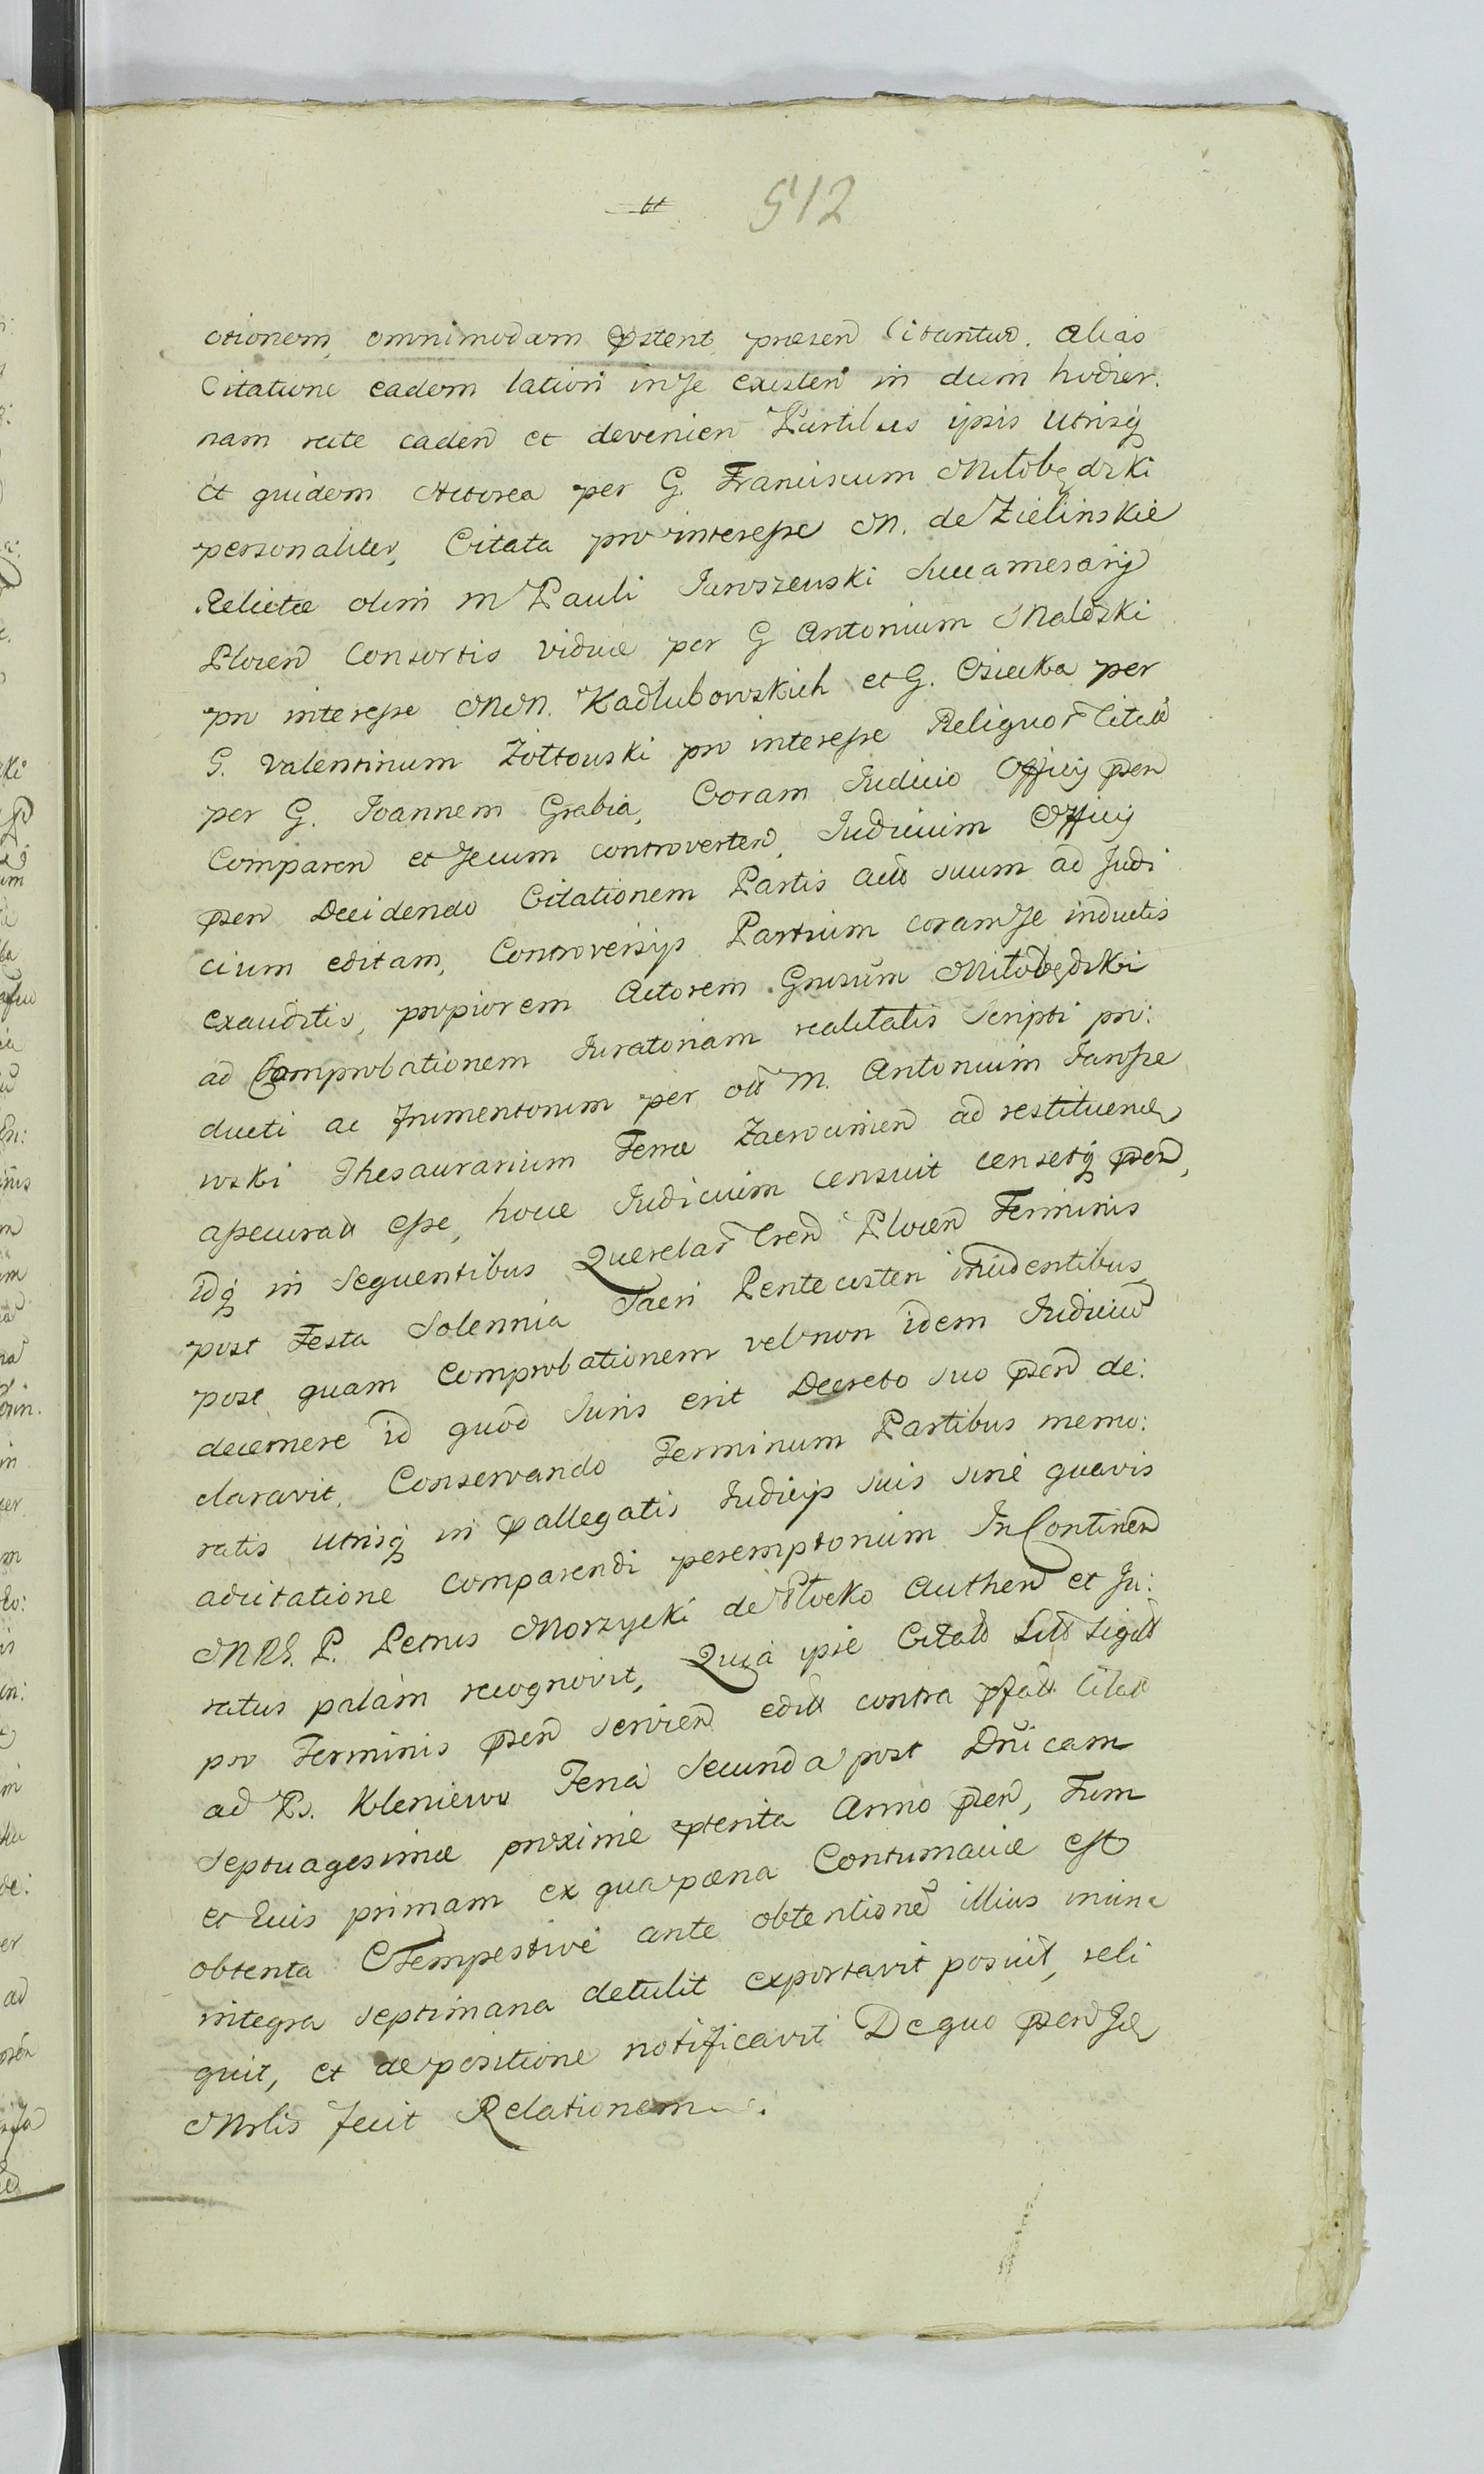 512
ctionem omnimodam pstent praesen Citantur. Alias
Citatione eadem lation in se existen in diem hodier.
nam rite caden et devenien Partibus ipsis utrisq
et quidem Actorea per G. Franciscum Miłobędzki
personaliter, Citata pro interesse M. de Zielinskie
Relictae olim M Pauli Jaroszewski Succamerarij
Plocen Consortis viduae per G Antonium Maleski
pro interesse MM. Kadłubowskich et G. Osiecka per
G. Valentinum Żółtowski pro interesse Reliquor Citat
per G. Joannem Grabia, Coram Judicio Officij psen
Comparen et secum controverten, Judicium Officij
psen Decidendo Citationem Partis act suum ad Judi
cium editam, Controversijs Partium coram se inductis
exauditis, propiorem Actorem Gnrsum Miłobędzki
ad Comprobationem Juratoriam realitatis Scripti pro:
ducti ac frumentorum per olt M. Antonium Jarosze
wski Thesaurarium Terrae Zacrocimen ad restituend
assecurat esse, hocce Judicium censuit censetq psen,
idq in Sequentibus Querelar Cren Plocen Terminis
post Festa Solennia Sacri Pentecosten incidentibus
post quam Comprobationem vel non idem Judiciu
decernere id quod Juris erit Decreto suo psen de:
claravit. Conservando Terminum Partibus memo:
ratis utrisq in pallegatis Judicijs suis sine quavis
adcitatione comparendi peremptorium In Continen
MRS. P. Petrus Morzycki de Płocko Authen et Ju:
ratus palam recognovit, Quia ipse Citat Litt sigilt
pro Terminis psen servien edit contra pfatt Citat
ad B. Kleniewo Feria Secunda post Dnicam
Septuagesimae proxime pterita Anno psen, Tum
et Luis primam ex qua paena Contumaciae est
obtenta Tempestive ante obtentione illius in una
integra septimana detulit exportavit posuit, reli
quit, et de positione notificavit De quo psen se
Mrlis fecit Relationem.